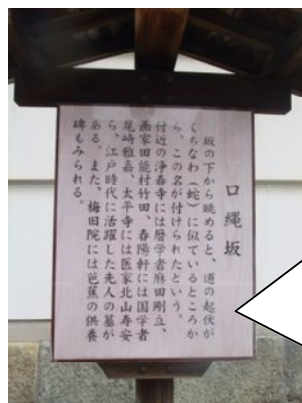 口繩坂
坂の下から眺めると、道の起伏が
くちなわ（蛇）に似ているところか
ら、この名が付けられたという。
付近の浄春寺には暦学者麻田剛立、
画家田能村竹田、春陽軒には国学者
尾崎雅嘉、太平寺には医家北山寿安
ら、江戸時代に活躍した先人の墓が
ある。また、梅旧院には芭蕉の供養
碑もみられる。